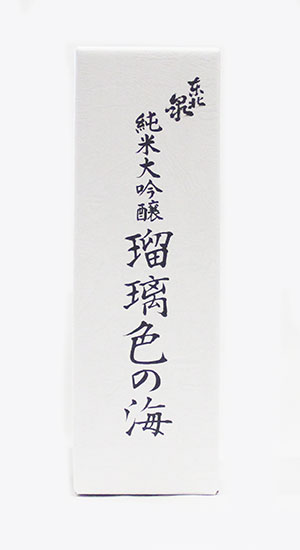 东北泉
純米大吟醸
瑠璃色の海